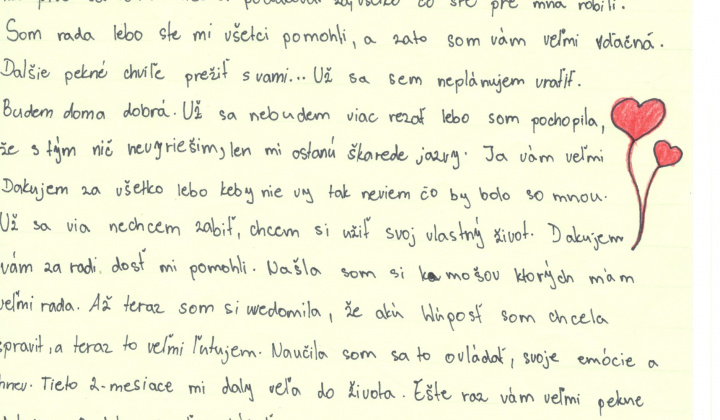 pre mňa robili.
Som rada lebo ste mi všetci pomohli, a zato som vám veľmi vďačná.
Dalšie pekné chvíľe prežiť s vami... Už sa sem neplánujem vratiť.
Budem doma dobrá. Už sa nebudem viac rezať lebo som pochopila,
že s tým nič nevyriešim, len mi ostanú škarede jazvy. Ja vám veľmi
Dakujem za všetko lebo keby nie vy tak neviem čo by bolo so mnou.
Už sa via nechcem zabiť, chcem si užiť svoj vlastný život. Dakujem
vám za radi dosť mi pomohli. Našla som si kamošov ktorých mám
veľmi rada. Až teraz som si uvedomila, že akú hlúposť som chcela
spraviť, a teraz to veľmi ľutujem. Naučila som sa to ovládať, svoje emócie a
hnev. Tieto 2-mesiace mi daly veľa do života. Ešte raz vám veľmi pekne